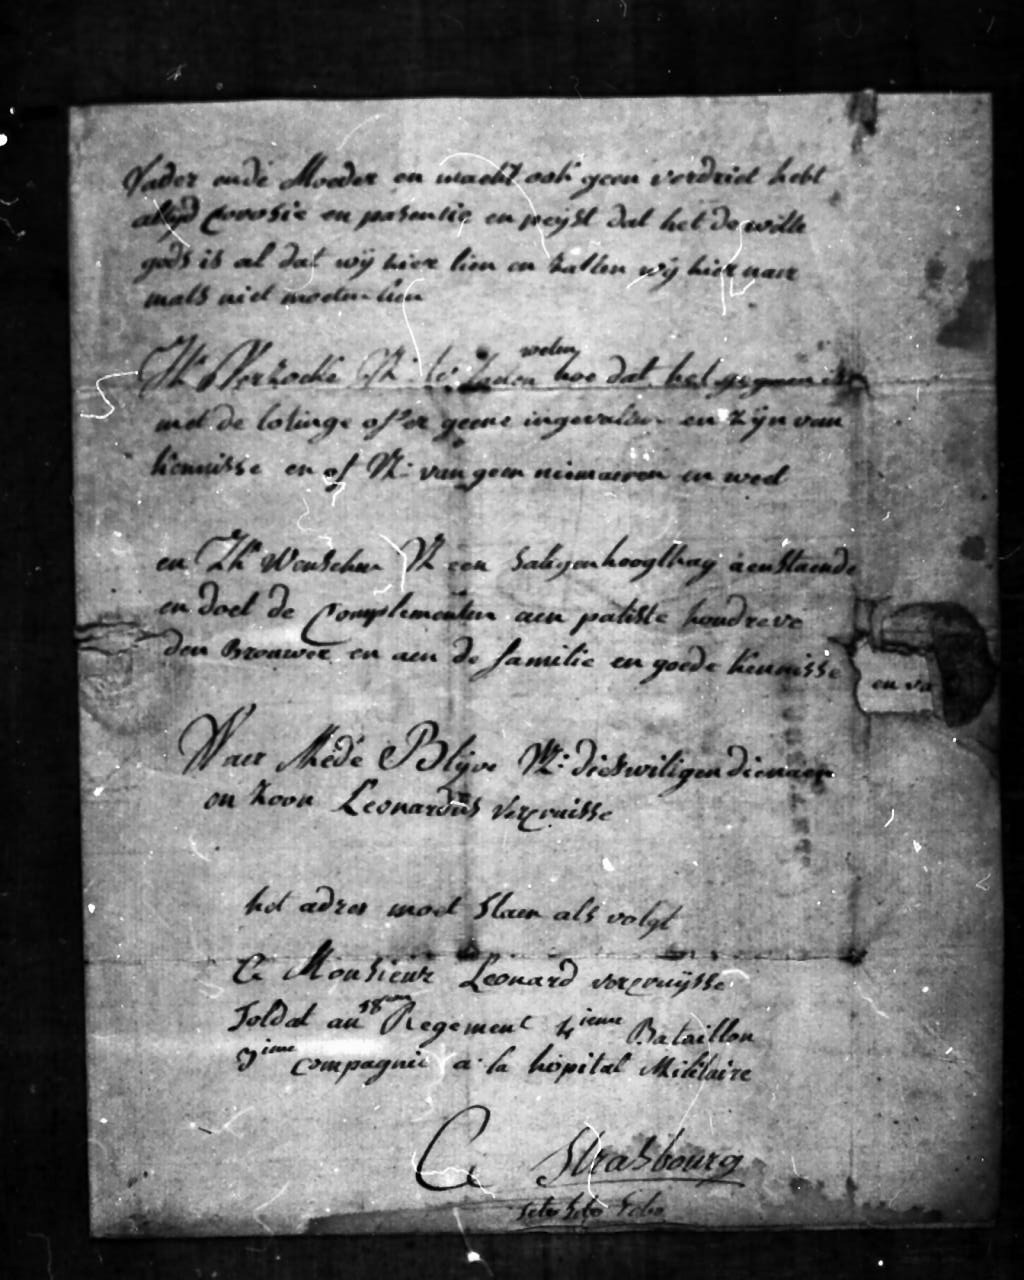 Vader ende Moeder en maekt ook geen verdriet hebt
altyd Coorosie en pasentie en peijst dat het de wille
gods is al dat wij hier lien en zullen wij hier naer
mals niet moeten lien
Ik Verzoeke UL: te laeten weten hoe dat het gegaen is
met de lotinge of er geene ingevallen en zijn van
kennisse en of UL: van geen niemaeren en weet
en Ik Wenschen UL een saligen hoogthag aenstaende
en doet de Complementen aen patiste houdreve
den Brouwer en aen de familie en goede kennisse
en va
Waer Mede Blijve UL: dietswiligen dienaer
en zoon Leonardus Vercruisse
het adres moet staen als volgt
A Monsieur Leonard vercruijsse
Soldat au 18eme Regement 4ieme Bataillon
3ieme compagnie a la hopital Militaire
A Strasbourg